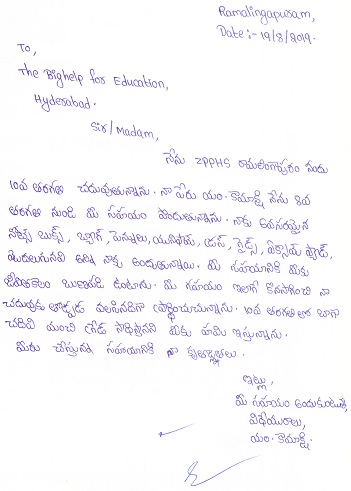 Ramalingapuram,
Date:- 19/8/2019.
To,
The Bighelp for Education,
Hyderabad.
Sir/Madam,
నేను ZPPHS రామలింగాపురం నందు
10వ తరగతి చదువుతున్నాను. నా పేరు యం. కామాక్షి నేను 8వ
తరగతి నుండి మీ సహాయం పొందుతున్నాను. నాకు అవసరమైన
నోట్సు బుక్స్, బ్యాగ్, పెన్నులు, యునిఫాం, డ్రస్, గైడ్స్, ఎక్సామ్ ప్యాడ్,
మొదలుగునవి అన్ని నాకు అందుతున్నాయి. మీ సహాయానికి మీకు
జీవితకాలం బుణపడి ఉంటాను. మీ సహాయం ఇలాగే కొనసాగించి నా
చదువుకు తోడ్పడ వలసినదిగా ప్రార్థించుచున్నాను. 10వ తరగతి బాగా
చదివి మంచి గ్రేడ్ సాధిస్తానని మీకు హామి ఇస్తున్నాను.
మీరు చేస్తున్న సహాయానికి నా కృతజ్ఞతలు.
ఇట్లు,
మీ సహాయం అందుకుంటున్న
విధేయురాలు,
యం. కామాక్షి.